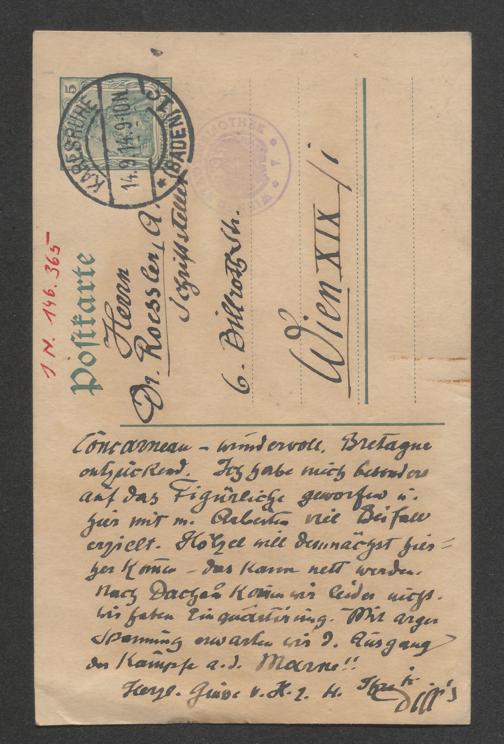 5
KARLSRUHE
14.9.14.9-10N
* (BADEN) 1 *
BIBLIOTHEK
WIEN
J.N. 146.365
Postkarte
Herrn
Dr. Roessler, A.
Schriftsteller
6. Billrothstr.
Wien XIX/i
Concarneau – wundervoll. Bretagne
entzückend. Ich habe mich besonders
auf das Figürliche geworfen u.
hier mit m. Arbeiten viel Beifall
erzielt. Hölzel will demnächst hier=
her kommen – das kann nett werden.
Nach Dachau können wir leider nicht.
wir haben Einquartierung. Mit arger
Spannung erwarten wir d. Ausgang
der Kämpfe a. d. Marne!!
Herzl. Grüße v. H. z. H. Ihre